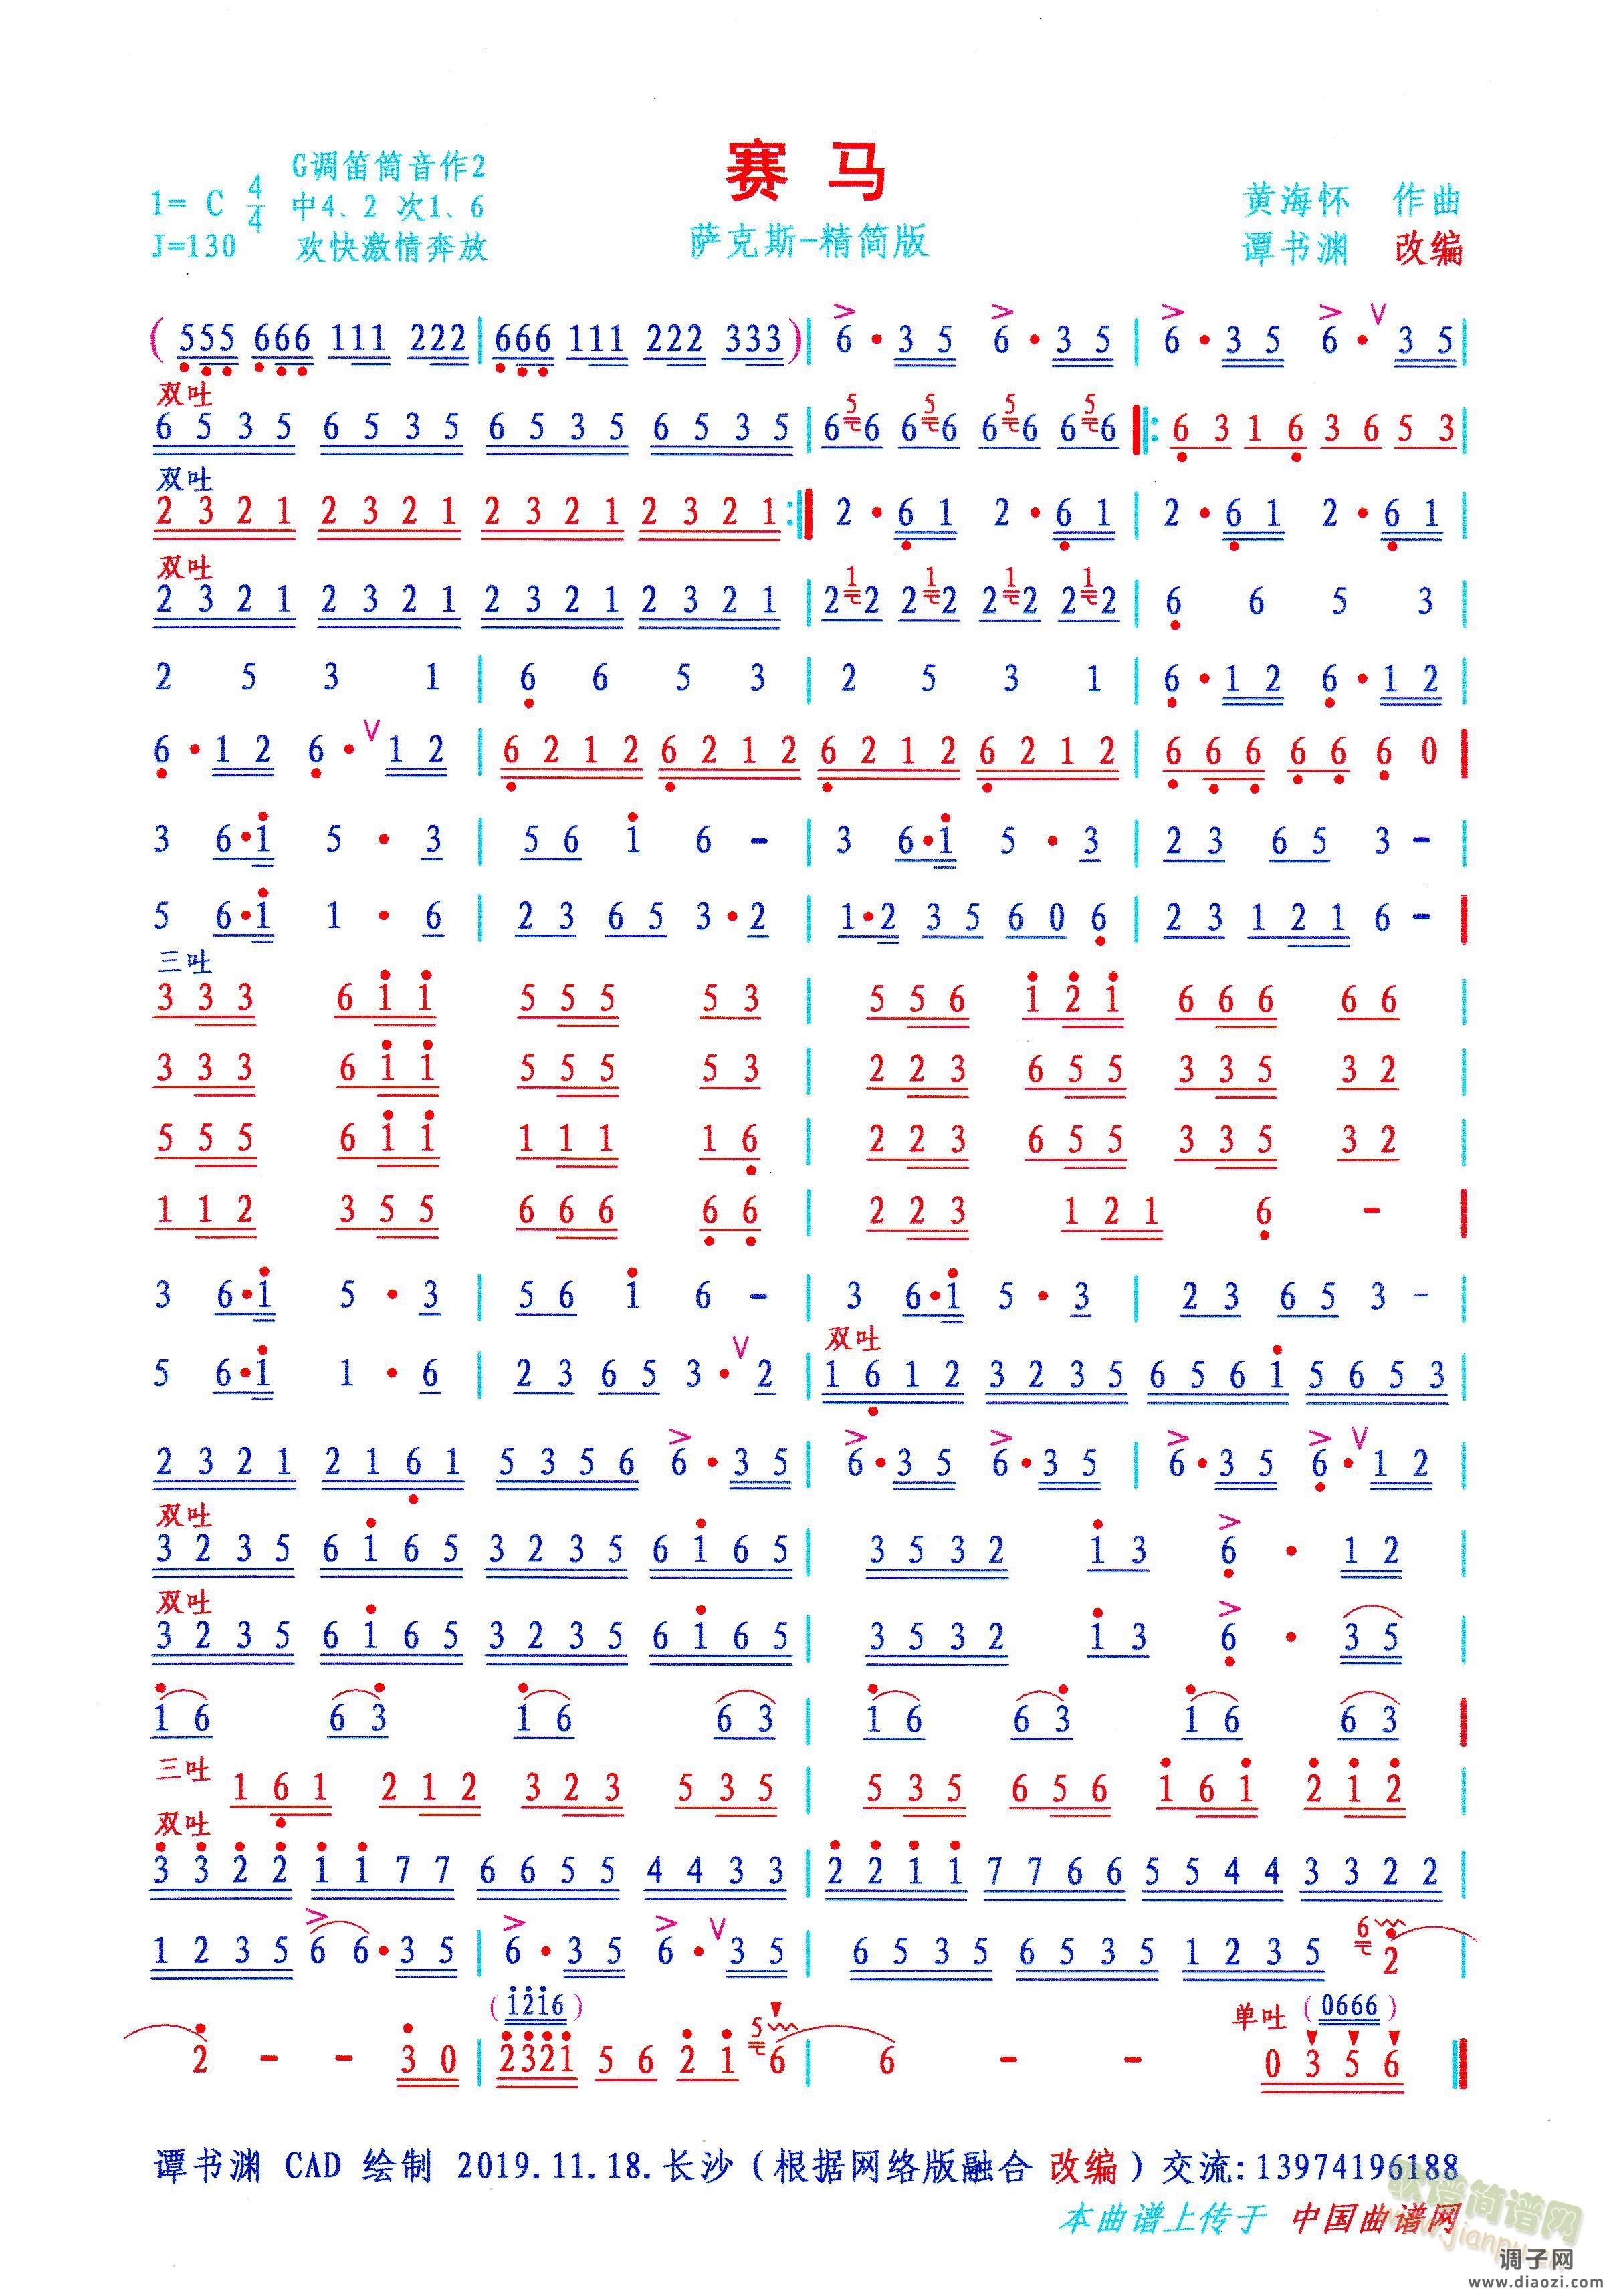 赛 马
G调笛筒音作2
1= C 4/4 中4、2 次1、6
J=130 欢快激情奔放
萨克斯-精简版
黄海怀 作曲
谭书渊 改编
( 555 666 111 222 | 666 111 222 333 ) | 6 · 3 5 6 · 3 5 | 6 · 3 5 6 · V 3 5 |
双吐
6 5 3 5 6 5 3 5 6 5 3 5 6 5 3 5 | 6 5 6 6 5 6 6 5 6 6 5 6 ‖: 6 3 1 6 3 6 5 3 |
双吐
2 3 2 1 2 3 2 1 2 3 2 1 2 3 2 1 :‖ 2 · 6 1 2 · 6 1 | 2 · 6 1 2 · 6 1 |
双吐
2 3 2 1 2 3 2 1 2 3 2 1 2 3 2 1 | 2 1 2 2 1 2 2 1 2 2 1 2 | 6 6 5 3 |
2 5 3 1 | 6 6 5 3 | 2 5 3 1 | 6 · 1 2 6 · 1 2 |
6 · 1 2 6 · V 1 2 | 6 2 1 2 6 2 1 2 6 2 1 2 6 2 1 2 | 6 6 6 6 6 6 0 |
3 6 · 1 5 · 3 | 5 6 1 6 - | 3 6 · 1 5 · 3 | 2 3 6 5 3 - |
5 6 · 1 1 · 6 | 2 3 6 5 3 · 2 | 1 · 2 3 5 6 0 6 | 2 3 1 2 1 6 - |
三吐
3 3 3 6 1 1 5 5 5 5 3 | 5 5 6 1 2 1 6 6 6 6 6 |
3 3 3 6 1 1 5 5 5 5 3 | 2 2 3 6 5 5 3 3 5 3 2 |
5 5 5 6 1 1 1 1 1 1 6 | 2 2 3 6 5 5 3 3 5 3 2 |
1 1 2 3 5 5 6 6 6 6 6 | 2 2 3 1 2 1 6 - |
3 6 · 1 5 · 3 | 5 6 1 6 - | 3 6 · 1 5 · 3 | 2 3 6 5 3 - |
双吐
5 6 · 1 1 · 6 | 2 3 6 5 3 · V 2 | 1 6 1 2 3 2 3 5 6 5 6 1 5 6 5 3 |
2 3 2 1 2 1 6 1 5 3 5 6 6 · 3 5 | 6 · 3 5 6 · 3 5 | 6 · 3 5 6 · V 1 2 |
双吐
3 2 3 5 6 1 6 5 3 2 3 5 6 1 6 5 | 3 5 3 2 1 3 6 · 1 2 |
双吐
3 2 3 5 6 1 6 5 3 2 3 5 6 1 6 5 | 3 5 3 2 1 3 6 · 3 5 |
1 6 6 3 1 6 6 3 | 1 6 6 3 1 6 6 3 |
三吐
1 6 1 2 1 2 3 2 3 5 3 5 | 5 3 5 6 5 6 1 6 1 2 1 2 |
双吐
3 3 2 2 1 1 7 7 6 6 5 5 4 4 3 3 | 2 2 1 1 7 7 6 6 5 5 4 4 3 3 2 2 |
1 2 3 5 6 6 · 3 5 | 6 · 3 5 6 · V 3 5 | 6 5 3 5 6 5 3 5 1 2 3 5 6 2 |
( 1216 ) 单吐 ( 0666 )
2 - - 3 0 | 2321 5 6 2 1 5 6 | 6 - - 0 3 5 6 ‖
谭书渊 CAD 绘制 2019.11.18.长沙（根据网络版融合 改编）交流:13974196188
本曲谱上传于 中国曲谱网
歌谱简谱网
www.jianpu.cn
调子网
www.diaozi.com